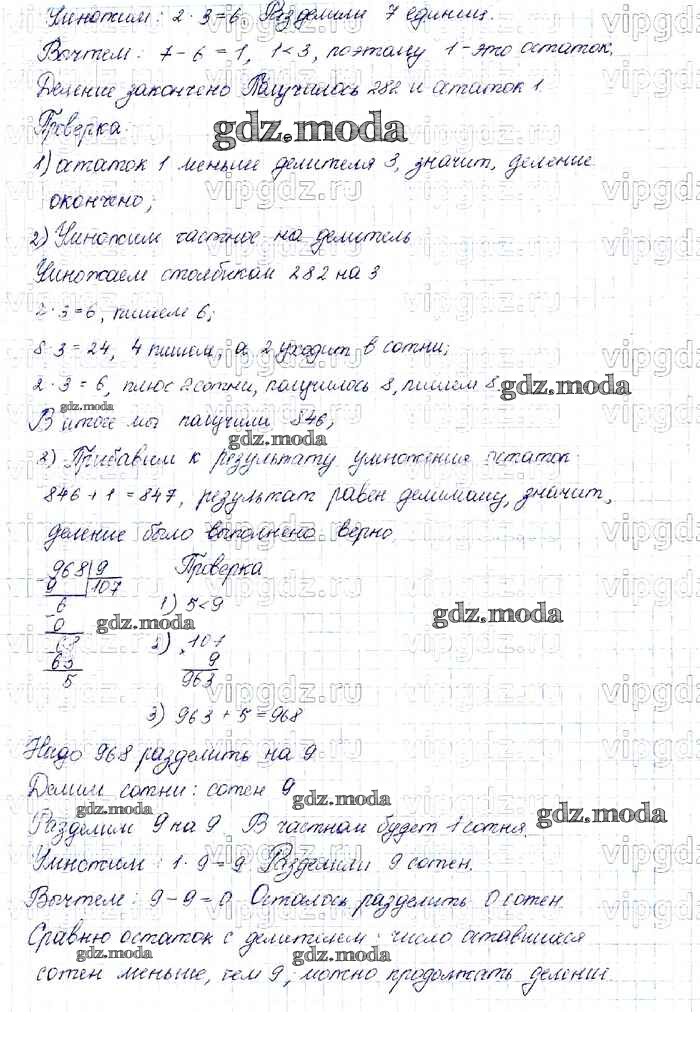 Умножим: 2·3=6. Разделили 7 единиц.
Вычтем: 7-6=1, 1<3, поэтому 1-это остаток.
Деление закончено Получилось 282 и остаток 1
Проверка:
gdz.moda
1) остаток 1 меньше делителя 3, значит, деление
окончено;
2) Умножим частное на делитель
Умножаем столбиком 282 на 3
2·3=6, пишем 6;
8·3=24, 4 пишем, а 2 уходит в сотни;
2·3=6, плюс 2 сотни, получилось 8, пишем 8.
gdz.moda
gdz.moda
В итоге мы получили 846;
gdz.moda
3) Прибавим к результату умножения остаток
846+1=847, результат равен делимому, значит,
деление было выполнено верно.
968|9 Проверка
9 107
6 1) 5<9
0 gdz.moda gdz.moda
68 2) 107
63 9
5 963
3) 963+5=968
Надо 968 разделить на 9
Делим сотни: сотен 9
gdz.moda gdz.moda gdz.moda
Разделим 9 на 9 В частном будет 1 сотня.
Умножим: 1·9=9 Разделили 9 сотен.
gdz.moda
Вычтем: 9-9=0 Осталось разделить 0 сотен.
gdz.moda
Сравню остаток с делителем: число оставшихся
gdz.moda gdz.moda
сотен меньше, чем 9, можно продолжать деление.
vipgdz.ru